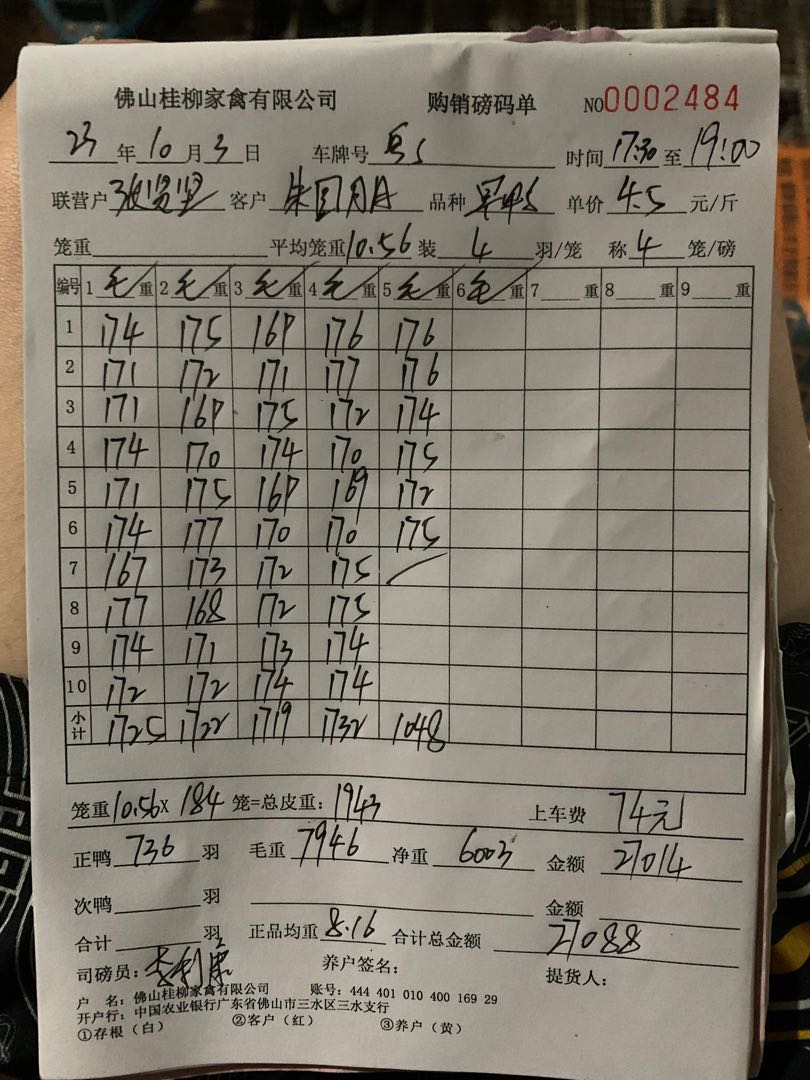 佛山桂柳家禽有限公司 购销磅码单 NO0002484
23年10月3日 车牌号 时间17:30至19:00
联营户 客户 品种 单价4.5元/斤
笼重 平均笼重10.56装4羽/笼 称4笼/磅
编号 1毛重 2毛重 3毛重 4毛重 5毛重 6毛重 7重 8重 9重
1 174 175 169 176 176
2 171 172 171 177 176
3 171 169 175 172 174
4 174 170 174 170 175
5 171 175 169 169 172
6 174 177 170 170 175
7 167 173 172 175
8 177 168 172 175
9 174 171 173 174
10 172 172 174 174
小计 1725 1722 1719 1732 1048
笼重10.56x184笼=总皮重：1943 上车费 74元
正鸭736羽 毛重7946 净重6003 金额27014
次鸭羽 金额
合计羽 正品均重8.16 合计总金额27088
司磅员：李利康 养户签名： 提货人：
户 名：佛山桂柳家禽有限公司 账号：444 401 010 400 169 29
开户行：中国农业银行广东省佛山市三水区三水支行
①存根（白） ②客户（红） ③养户（黄）